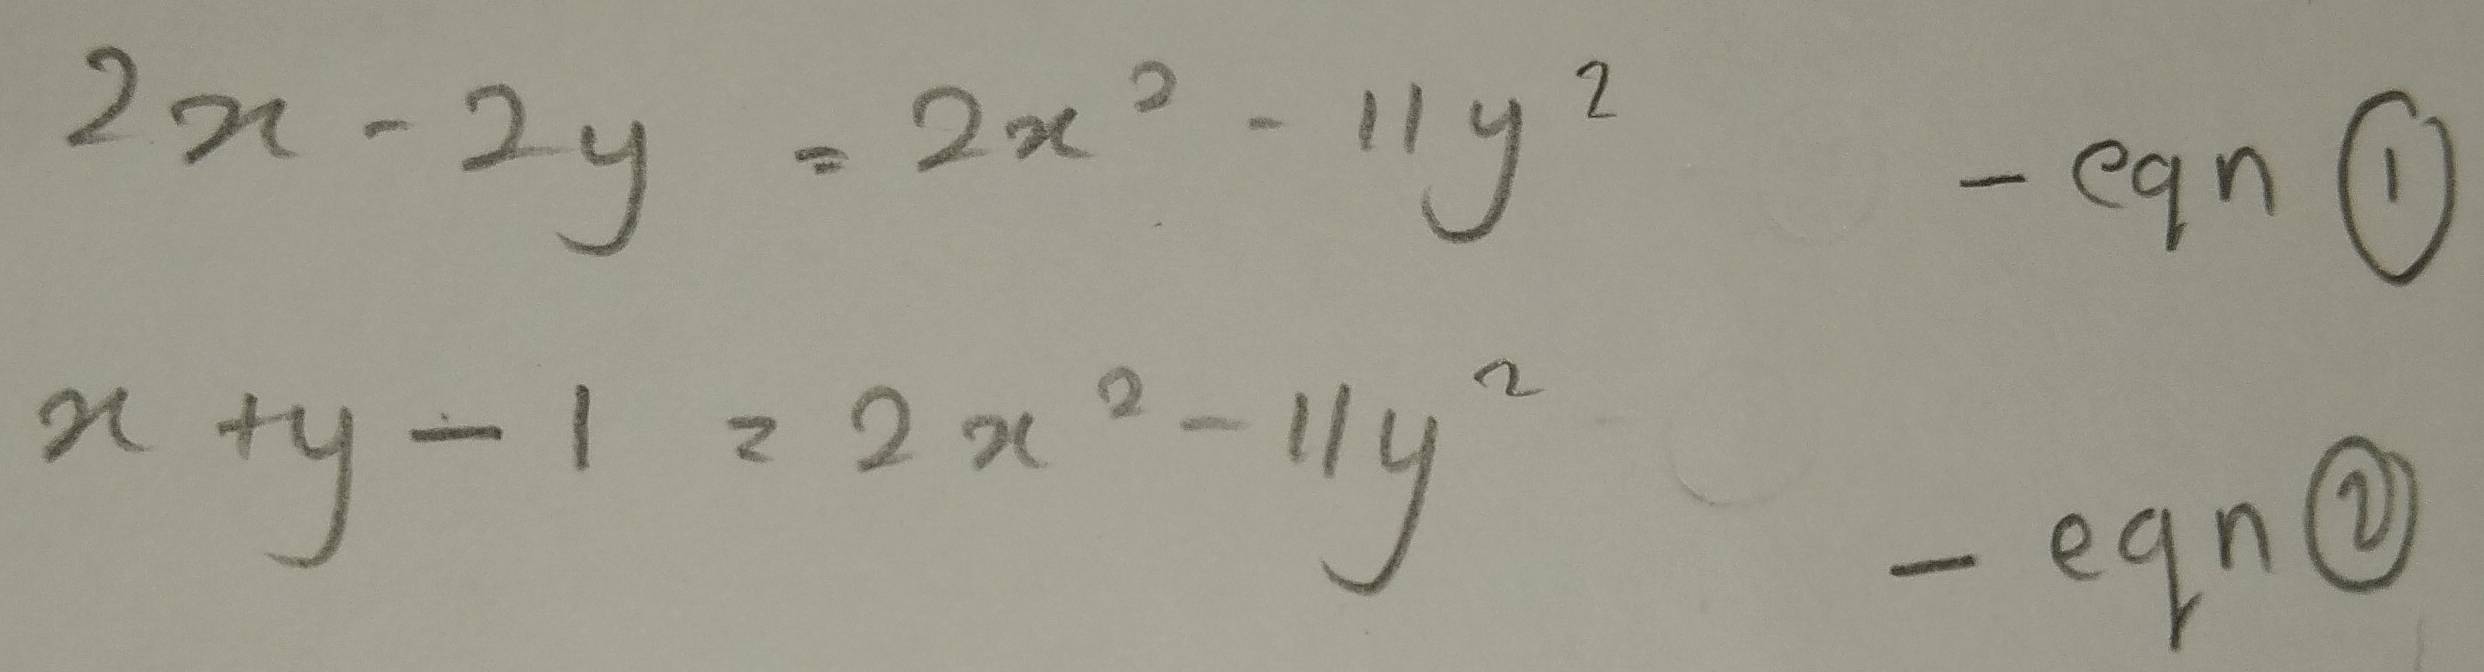 2x - 2y = 2x² - 11y² - eqn ①
x + y - 1 = 2x² - 11y² - eqn ②